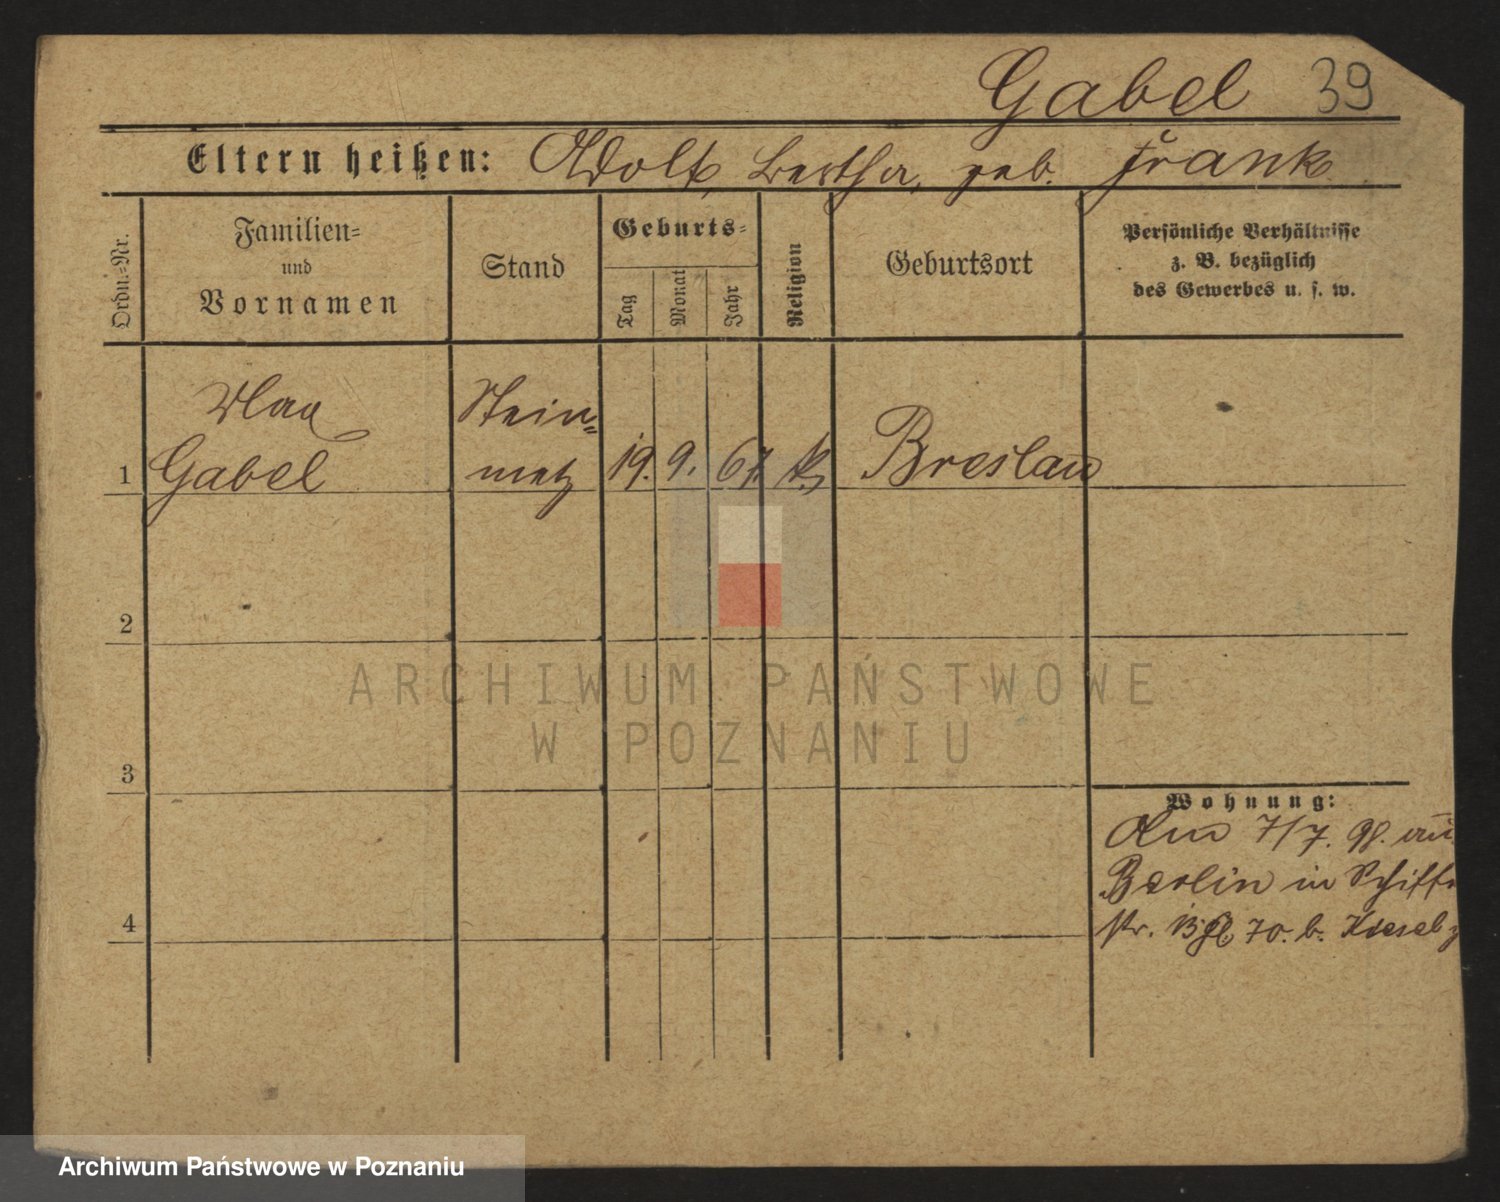 Gabel 39
Eltern heißen: Adolf, Bertha, geb. Frank
Ordn.-Nr.
Familien-
und
Vornamen
Stand
Geburts-
Tag
Monat
Jahr
Religion
Geburtsort
Persönliche Verhältnisse
z. B. bezüglich
des Gewerbes u. s. w.
Max
Gabel
Stein-
metz
1 19. 9. 67. Breslau
2
3
4
Wohnung:
Am 7/7. 98. aus
Berlin in Schiffer
str. 70. b. Kiesel
ARCHIWUM PAŃSTWOWE
W POZNANIU
Archiwum Państwowe w Poznaniu